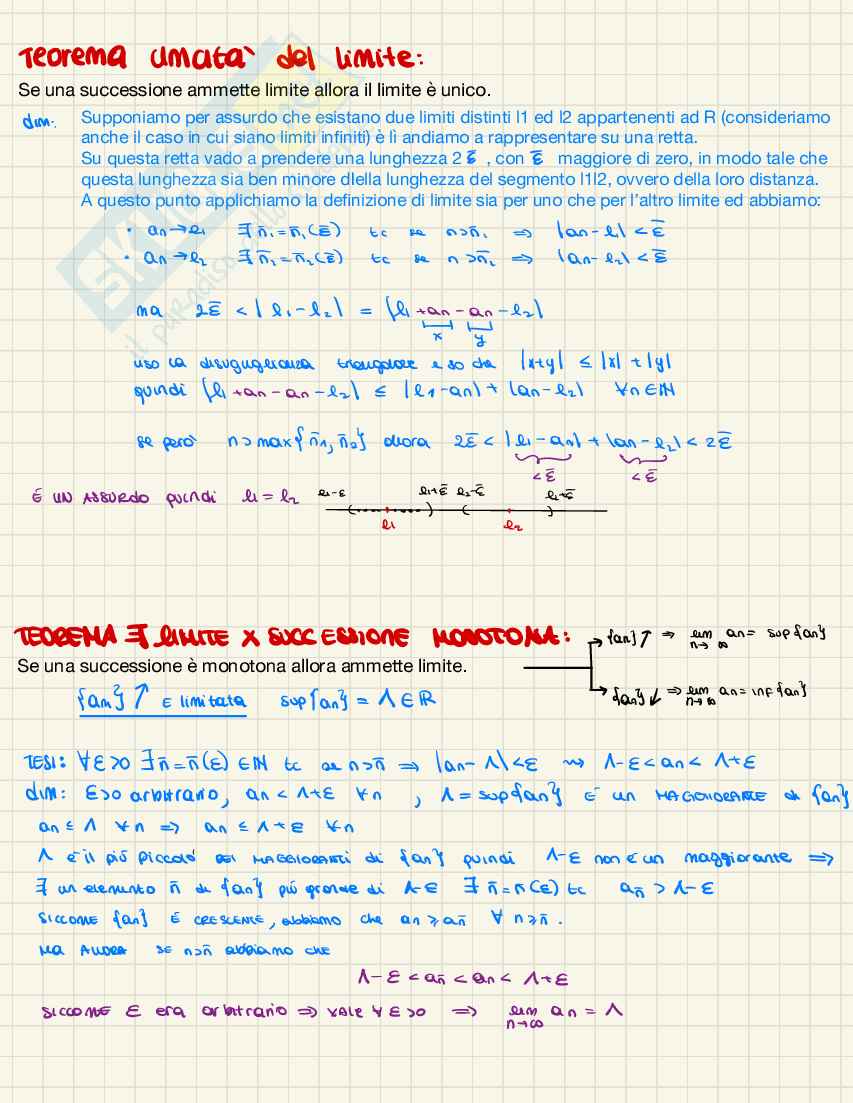 Teorema unicità del limite:
Se una successione ammette limite allora il limite è unico.
dim: Supponiamo per assurdo che esistano due limiti distinti l1 ed l2 appartenenti ad R (consideriamo
anche il caso in cui siano limiti infiniti) è lì andiamo a rappresentare su una retta.
Su questa retta vado a prendere una lunghezza 2 ε̅ , con ε̅ maggiore di zero, in modo tale che
questa lunghezza sia ben minore dlella lunghezza del segmento l1l2, ovvero della loro distanza.
A questo punto applichiamo la definizione di limite sia per uno che per l'altro limite ed abbiamo:
• an → l₁ ∃ n̅₁ = n̅₁(ε̅) tc se n > n̅₁ ⇒ |an - l₁| < ε̅
• an → l₂ ∃ n̅₂ = n̅₂(ε̅) tc se n > n̅₂ ⇒ |an - l₂| < ε̅
ma 2ε̅ < |l₁ - l₂| = |l₁ + an - an - l₂|
x y
uso la disuguglianza triangolare e so che |x+y| ≤ |x| + |y|
quindi |l₁ + an - an - l₂| ≤ |l1 - an| + |an - l₂| ∀n ∈ ℕ
se però n > max{n̅1, n̅2} allora 2ε̅ < |l₁ - an| + |an - l₂| < 2ε̅
< ε̅ < ε̅
È UN ASSURDO quindi l₁ = l₂
l₁-ε l₁+ε̅ l₂-ε̅ l₁+ε̅
l₁ l₂
TEOREMA ∃ LIMITE X SUCCESSIONE MONOTONA:
{an}↑ ⇒ lim n→∞ an = sup{an}
Se una successione è monotona allora ammette limite.
{an}↓ ⇒ lim n→∞ an = inf{an}
{an}↑ E limitata sup{an} = Λ ∈ ℝ
TESI: ∀ε>0 ∃ n̅ = n̅(ε) ∈ ℕ tc se n > n̅ ⇒ |an - Λ| < ε ⇝ Λ-ε < an < Λ+ε
dim: ε>0 arbitrario, an < Λ+ε ∀n , Λ = sup{an} È un MAGGIORANTE di {an}
an ≤ Λ ∀n ⇒ an ≤ Λ+ε ∀n
Λ è il più piccolo DEI MAGGIORANTI di {an} quindi Λ-ε non è un maggiorante ⇒
∃ un elemento n̅ di {an} più grande di Λ-ε ∃ n̅ = n(ε) tc an̅ > Λ-ε
SICCOME {an} È CRESCENTE, abbiamo che an ≥ an̅ ∀ n ≥ n̅.
MA ALLORA SE n>n̅ abbiamo che
Λ-ε < an̅ < an < Λ+ε
SICCOME ε era arbitrario ⇒ VALE ∀ε>0 ⇒ lim n→∞ an = Λ
SKUOLA.net
il paradiso dello studente